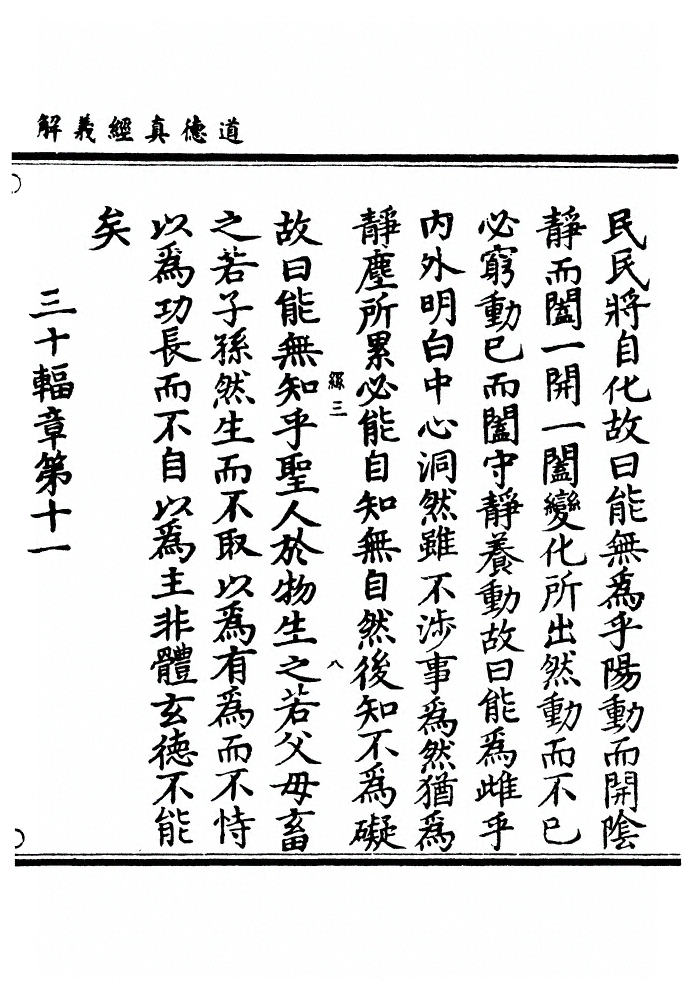 道德真經義解
民民將自化故曰能無爲乎陽動而開陰
靜而闔一開一闔變化所出然動而不已
必窮動已而闔守靜養動故曰能爲雌乎
內外明白中心洞然雖不涉事爲然猶爲
靜塵所累必能自知無自然後知不爲礙
三
八
故曰能無知乎聖人於物生之若父母畜
之若子孫然生而不取以爲有爲而不恃
以爲功長而不自以爲主非體玄德不能
矣
三十輻章第十一